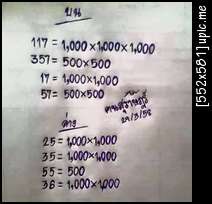 บน
117 = 1,000×1,000×1,000
357 = 500×500
17 = 1,000×1,000
57 = 500×500
29/3/58
ล่าง
25 = 1,000×1,000
35 = 1,000×1,000
55 = 500
36 = 1,000×1,000
[552x581] upic.me